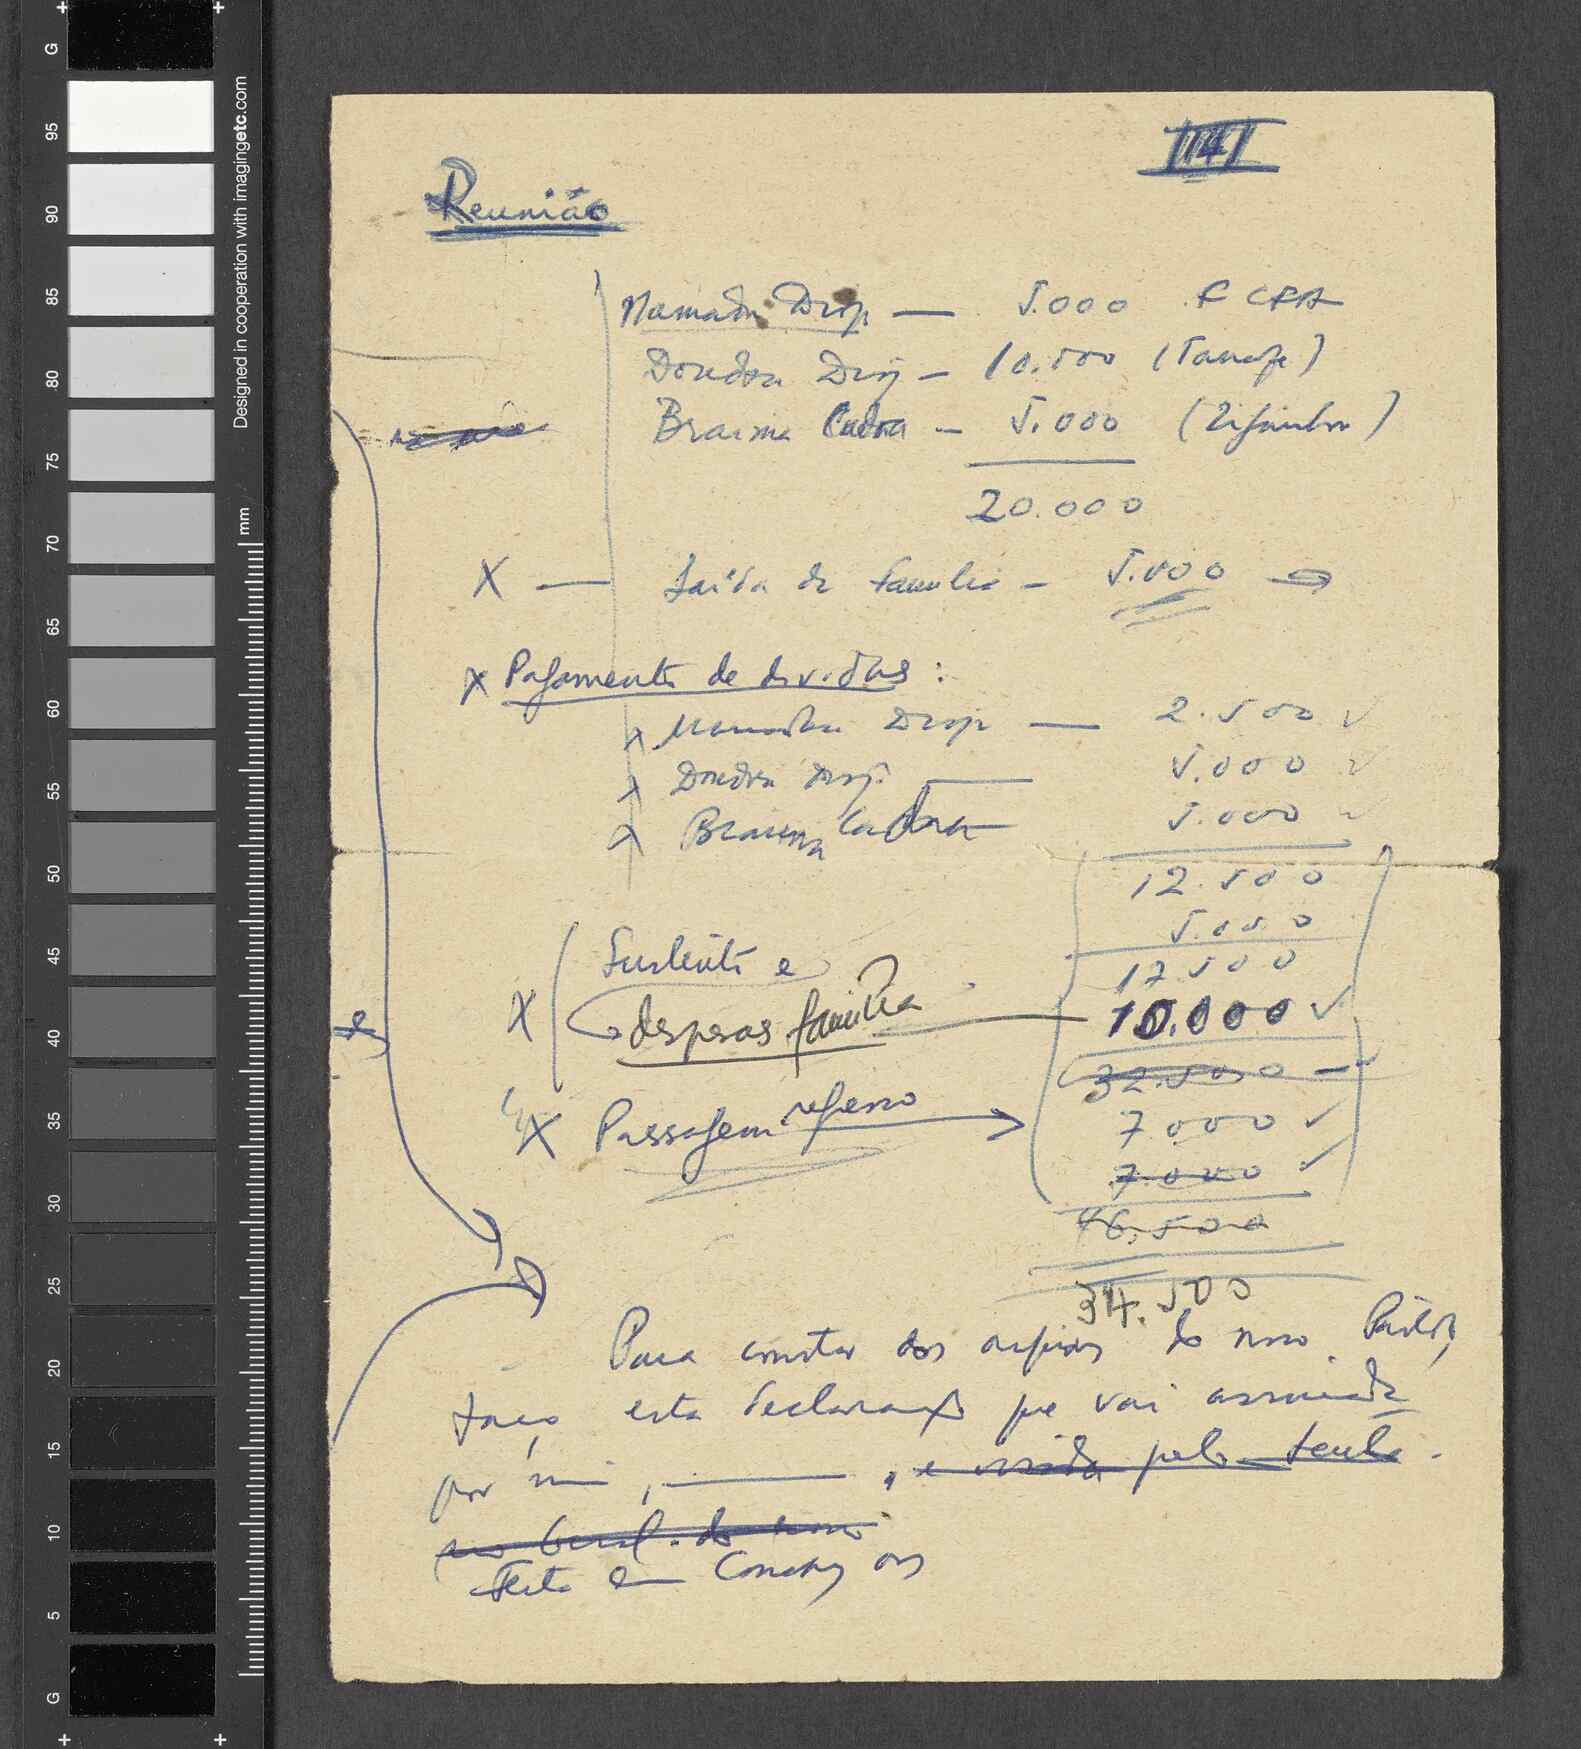 G
95
90
85
80
75
70
65
60
55
50
45
40
35
30
25
20
15
10
5
G
Designed in cooperation with imagingetc.com
mm
Reunião
Mamadu Diop — 5.000 F CFA
Doudou Diop — 10.000
Braima Cadra — 5.000 (Ziguinchor)
20.000
X — Saída da família — 5.000
X Pagamento de dívidas:
X Mamadu Diop — 2.500
X Doudou Diop — 5.000
X Braima Cadra — 5.000
12.500
5.000
17.500
X Sustento e
despesas família — 10.000
32.500
X Passagem regresso 7.000
7.000
46.500
34.500
Para constar dos arquivos do nosso Partido,
faço esta declaração que vai assinada
por mim, ———, e visada pelo
Geral do nosso
Feito em Conakry aos